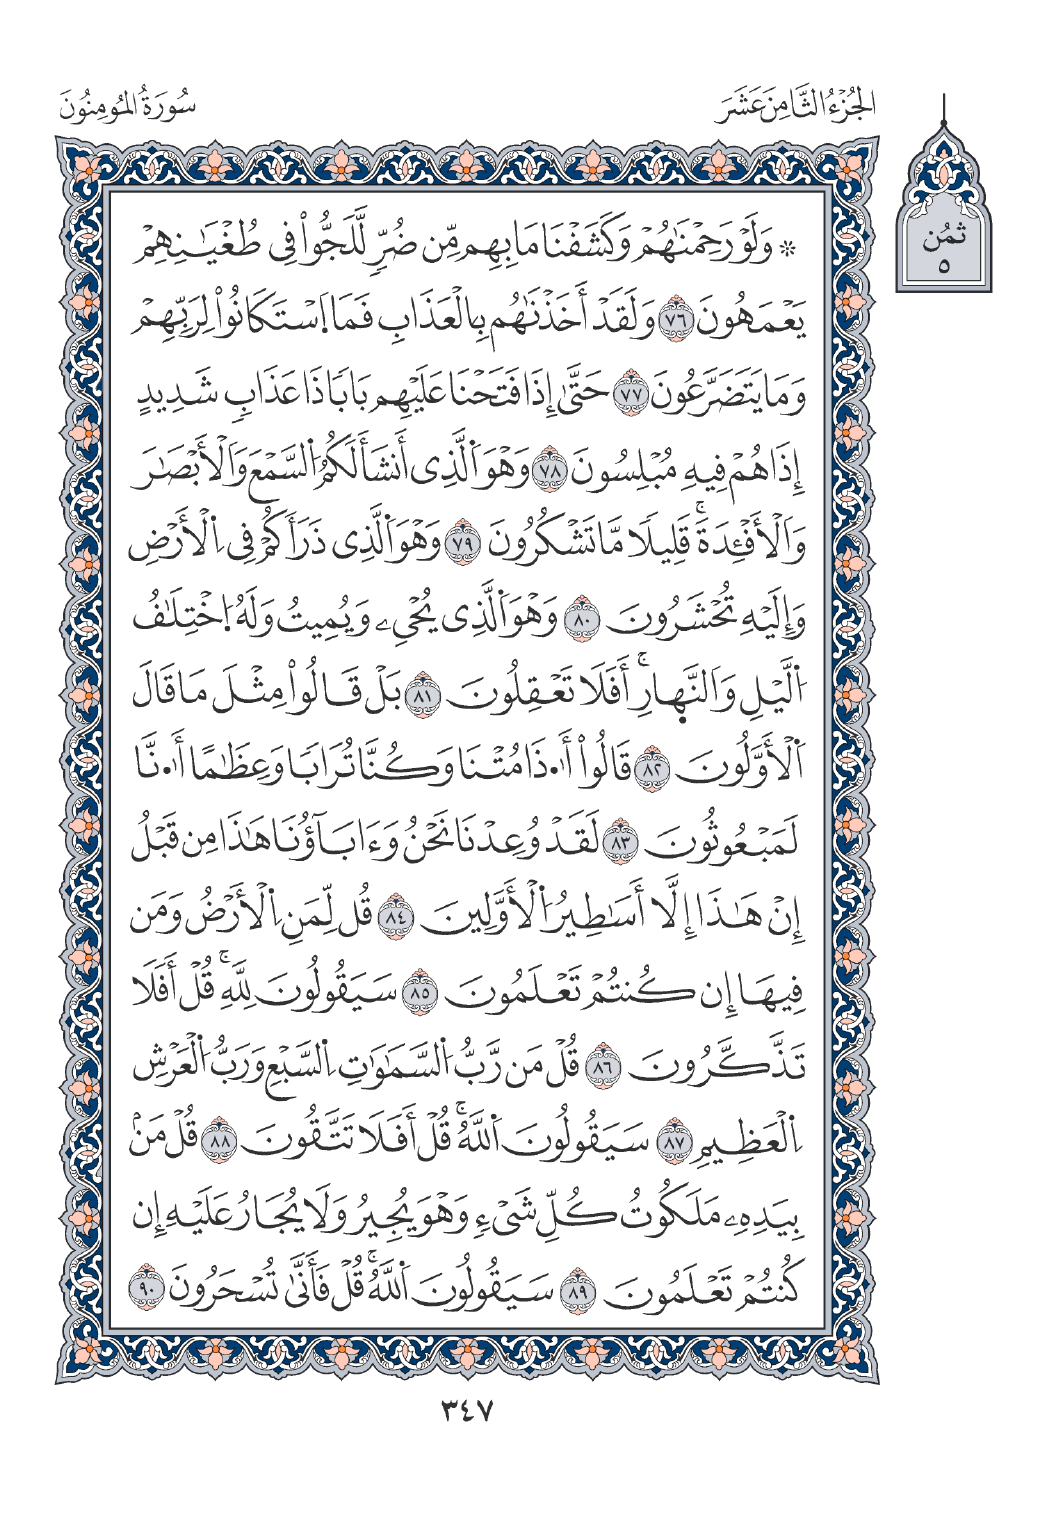 الجُزْءُ الثَّامِنَ عَشَرَ
سُورَةُ المُومِنُونَ
ثمُن
٥
۞ وَلَوْ رَحِمْنَٰهُمْ وَكَشَفْنَا مَا بِهِم مِّن ضُرٍّ لَّلَجُّواْ فِى طُغْيَٰنِهِمْ
يَعْمَهُونَ ٧٦ وَلَقَدْ أَخَذْنَٰهُم بِالْعَذَابِ فَمَا اَسْتَكَانُواْ لِرَبِّهِمْ
وَمَا يَتَضَرَّعُونَ ٧٧ حَتَّىٰ إِذَا فَتَحْنَا عَلَيْهِم بَابًا ذَا عَذَابٍ شَدِيدٍ
إِذَا هُمْ فِيهِ مُبْلِسُونَ ٧٨ وَهْوَ اَلَّذِى أَنشَأَ لَكُمُ اُلسَّمْعَ وَالْأَبْصَٰرَ
وَالْأَفْـِٔدَةَ ۚ قَلِيلًا مَّا تَشْكُرُونَ ٧٩ وَهْوَ اَلَّذِى ذَرَأَكُمْ فِى اِلْأَرْضِ
وَإِلَيْهِ تُحْشَرُونَ ٨٠ وَهْوَ اَلَّذِى يُحْيِۦ وَيُمِيتُ وَلَهُ اُخْتِلَٰفُ
اُلَّيْلِ وَالنَّهِارِ ۚ أَفَلَا تَعْقِلُونَ ٨١ بَلْ قَالُواْ مِثْلَ مَا قَالَ
اَلْأَوَّلُونَ ٨٢ قَالُواْ أَ.ٰذَا مُتْنَا وَكُنَّا تُرَابًا وَعِظَٰمًا أَ.ٰنَّا
لَمَبْعُوثُونَ ٨٣ لَقَدْ وُعِدْنَا نَحْنُ وَءَابَآؤُنَا هَٰذَا مِن قَبْلُ
إِنْ هَٰذَا إِلَّا أَسَٰطِيرُ اُلْأَوَّلِينَ ٨٤ قُل لِّمَنِ اِلْأَرْضُ وَمَن
فِيهَا إِن كُنتُمْ تَعْلَمُونَ ٨٥ سَيَقُولُونَ لِلَّهِ ۚ قُلْ أَفَلَا
تَذَّكَّرُونَ ٨٦ قُلْ مَن رَّبُّ اُلسَّمَٰوَٰتِ اِلسَّبْعِ وَرَبُّ اُلْعَرْشِ
اِلْعَظِيمِ ٨٧ سَيَقُولُونَ اَللَّهُ ۚ قُلْ أَفَلَا تَتَّقُونَ ٨٨ قُلْ مَنۢ
بِيَدِهِۦ مَلَكُوتُ كُلِّ شَىْءٍ وَهْوَ يُجِيرُ وَلَا يُجَارُ عَلَيْهِ إِن
كُنتُمْ تَعْلَمُونَ ٨٩ سَيَقُولُونَ اَللَّهُ ۚ قُلْ فَأَنَّىٰ تُسْحَرُونَ ٩٠
٣٤٧